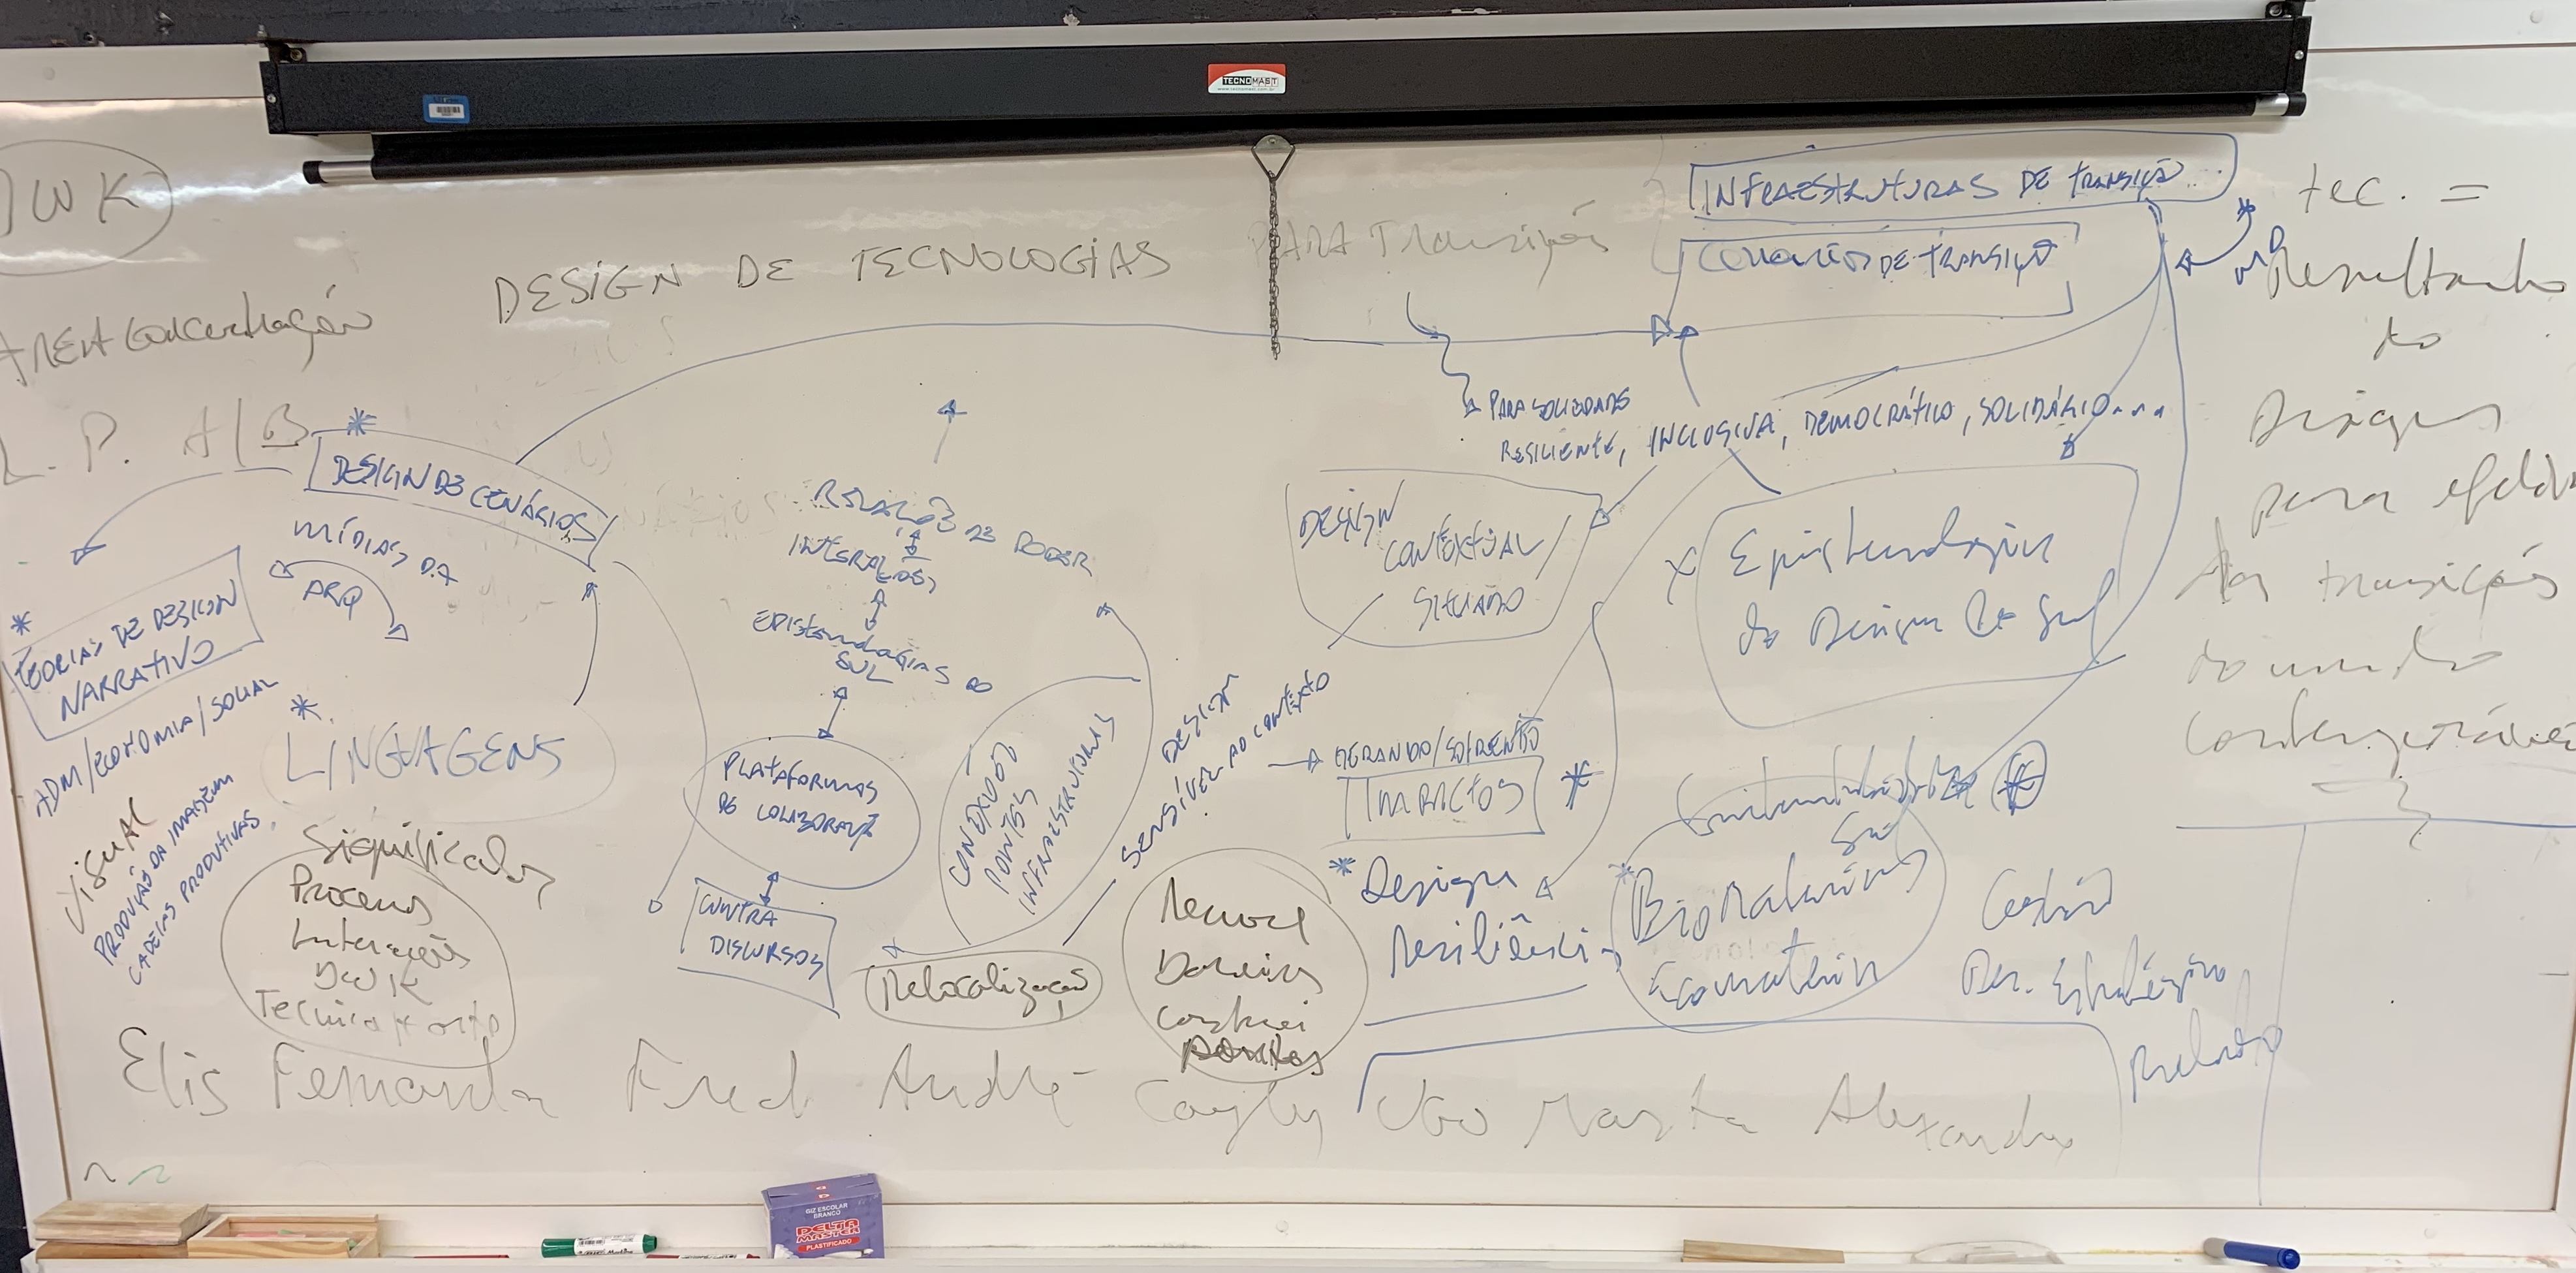 TECNOMAST
DWK
ÁREA Concentração
L. P. A/B
DESIGN DE TECNOLOGIAS PARA Transições
INFRAESTRUTURAS DE TRANSIÇÃO
CENÁRIOS DE TRANSIÇÃO
PARA SOCIEDADES
RESILIENTE, INCLUSIVA, DEMOCRÁTICO, SOLIDÁRIO...
tec. =
Resultado
do
Design
para efetivar
as transições
do mundo
contemporâneo
* DESIGN DE CENÁRIOS
MÍDIAS DA
ARQ
* TEORIAS DE DESIGN
NARRATIVO
ADM/ECONOMIA/SOCIAL
VISUAL
PRODUÇÃO DA IMAGEM
CADEIAS PRODUTIVAS
* LINGUAGENS
Significados
Processos
Interações
DWK
RELAÇÕES DE PODER
INTERAÇÕES
EPISTEMOLOGIAS DO
SUL
PLATAFORMAS
DE COLABORAÇÃO
CONTRA
DISCURSOS
CONEXÕES
PONTES
INFRAESTRUTURAS
Relocalização
DESIGN
SENSÍVEL AO CONTEXTO
DESIGN
CONTEXTUAL/
SITUADO
X Epistemologia
do Design do Sul
GERANDO/SOFRENDO
IMPACTOS *
* Design
Resiliência
Remove
Barreiras
Constrói
pontes
Sustentabilidade
Sul
* BioMateriais
Gestão
Des. Estratégico
Elis Fernanda Fred André Ugo Marta Alexandre
GIZ ESCOLAR
BRANCO
DELTA
MASTER
PLASTIFICADO